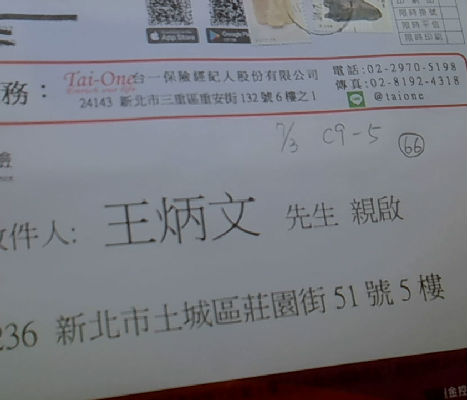 App Store
Google Play
限時掛號
限時平信
限時印刷
務：
Tai-One 台一保險經紀人股份有限公司
24143 新北市三重區重安街132號6樓之1
電話:02-2970-5198
傳真:02-8192-4318
@taione
7/3 C9-5 66
件人: 王炳文 先生 親啟
236 新北市土城區莊園街51號5樓